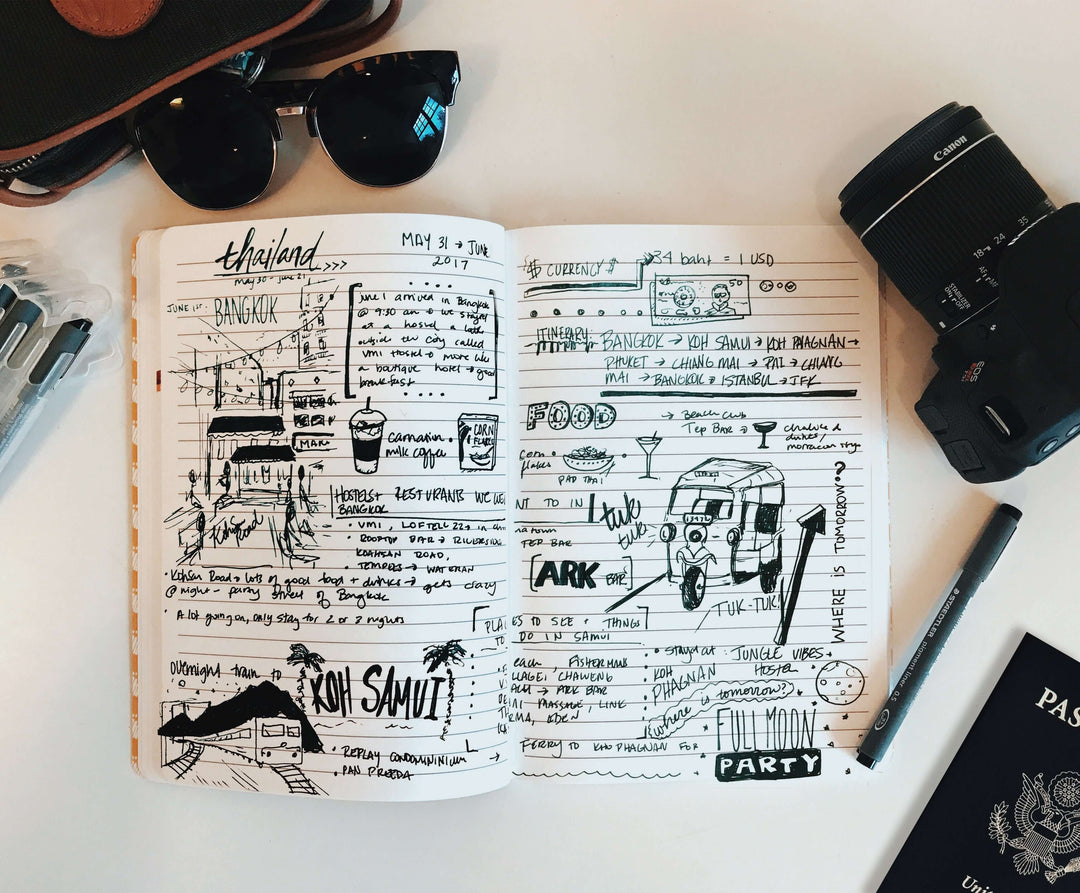 thailand >>>
may 30 - june 21
MAY 31 → JUNE
2017
JUNE 1ST.
BANGKOK
June 1 arrived in Bangkok
@ 9:30 am & we stayed
at a hostel a little
outside the city called
VMI Hostel → more like
a boutique hotel → good
breakfast
Carnation
milk coffee
CORN
FLAKES
HOSTELS + RESTURANTS WE
BANGKOK
• VMI, LOFTELL 22 → in
• ROOFTOP BAR → RIVERSIDE
KOAHSAN ROAD,
Kohsan Road → lots of good food + drinks → gets crazy
@ night - party street of Bangkok
• A lot going on, only stay for 2 or 3 nights
overnight train to
KOH SAMUI
• REPLAY CONDOMINIUM →
• PAN PREEDA
$ CURRENCY $
→ 34 baht = 1 USD
50
ITINERARY:
BANGKOK → KOH SAMUI → KOH PHAGNAN →
PHUKET → CHIANG MAI → PAI → CHIANG
MAI → BANGKOK → ISTANBUL → JFK
FOOD
→ Beach Club
Tep BAR →
corn
flakes
PAD THAI
NT TO IN
TEP BAR
tuk
tuk
[ARK BAR]
TUK-TUK!
WHERE IS TOMORROW?
PLACES TO SEE + THINGS
TO DO IN SAMUI
each, FISHERMANS
VILLAGE, CHAWENG
→ ARK BAR
MASSAGE, LINK
EDEN
FERRY TO KHO PHAGNAN FOR
• Stayed at: JUNGLE VIBES
HOSTEL
KOH
PHAGNAN
where is tomorrow?
FULL MOON
PARTY
Canon
18 24 35
AF
STABILIZER
ON OFF
EOS
STAEDTLER pigment liner 0.5
PAS
Unit